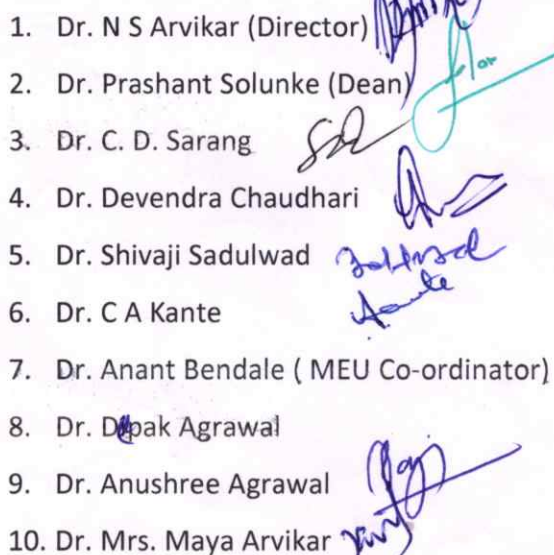 1. Dr. N S Arvikar (Director)
2. Dr. Prashant Solunke (Dean)
3. Dr. C. D. Sarang
4. Dr. Devendra Chaudhari
5. Dr. Shivaji Sadulwad
6. Dr. C A Kante
Kante
7. Dr. Anant Bendale ( MEU Co-ordinator)
8. Dr. Depak Agrawal
9. Dr. Anushree Agrawal
10. Dr. Mrs. Maya Arvikar